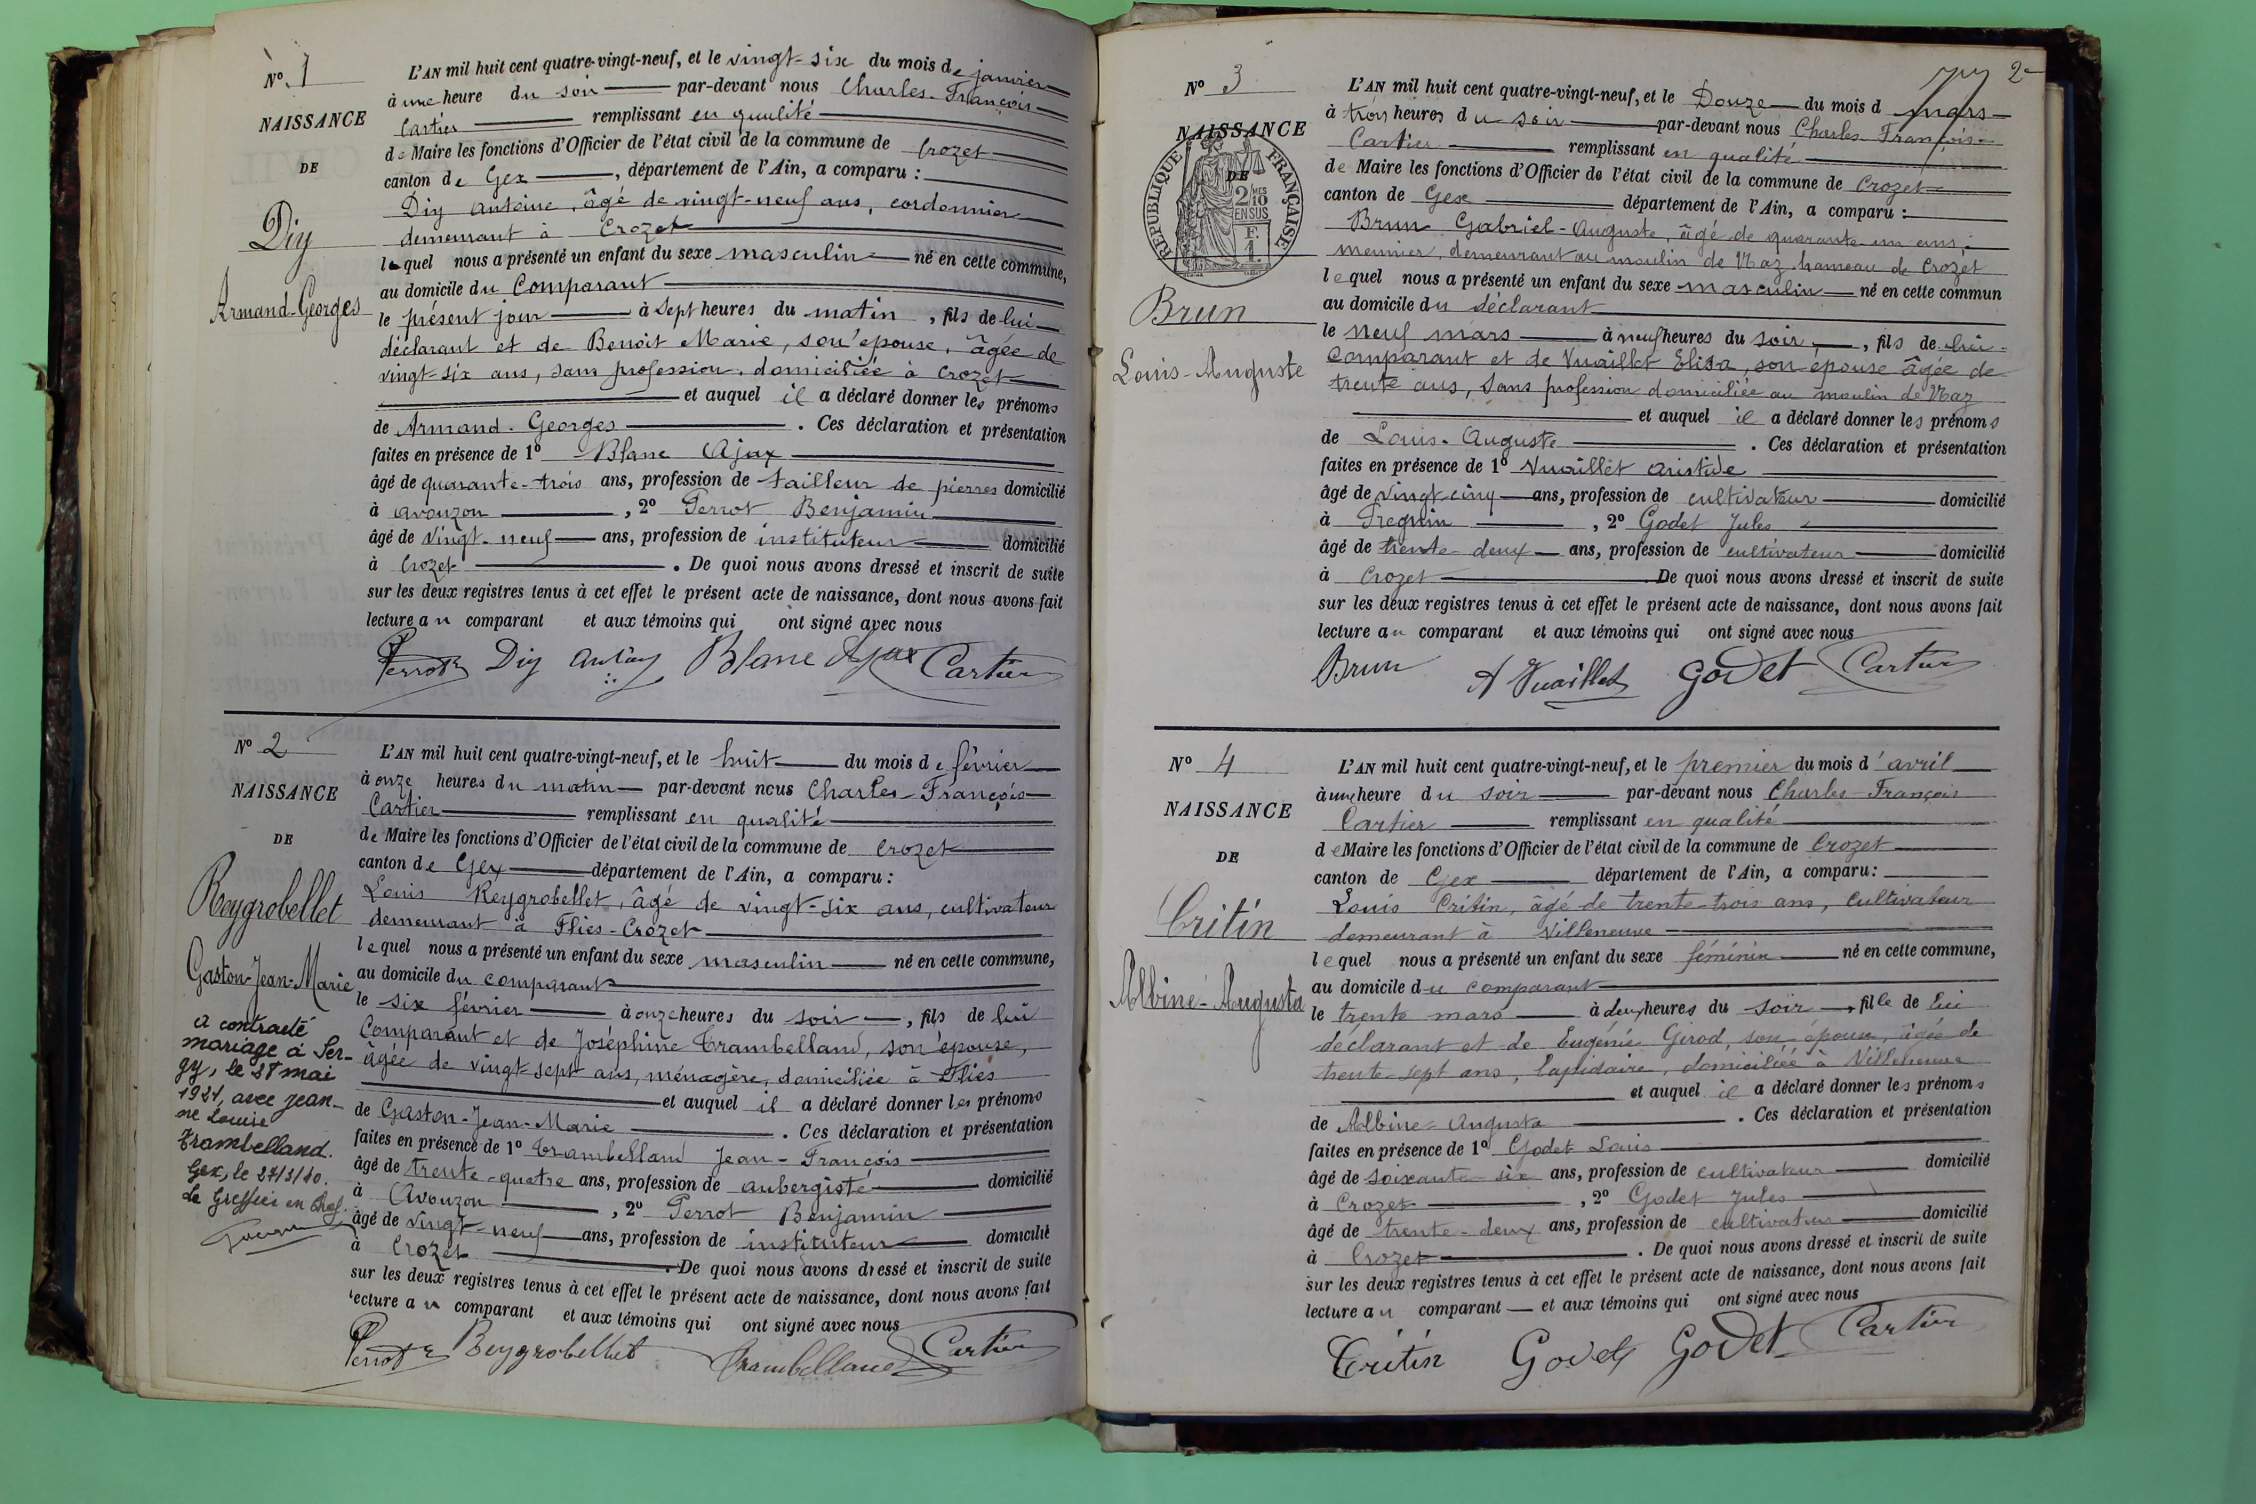 N° 1
NAISSANCE
DE
Diy
Armand-Georges
L'AN mil huit cent quatre-vingt-neuf, et le vingt-six du mois de janvier
à une heure du soir par-devant nous Charles-François
Cartier remplissant en qualité
de Maire les fonctions d'Officier de l'état civil de la commune de Crozet
canton de Gex, département de l'Ain, a comparu :
Diy Antoine, âgé de vingt-neuf ans, cordonnier
demeurant à Crozet
lequel nous a présenté un enfant du sexe masculin né en cette commune,
au domicile du Comparant
le présent jour à sept heures du matin, fils de lui
déclarant et de Benoit Marie, son épouse, âgée de
vingt-six ans, sans profession, domiciliée à Crozet
et auquel il a déclaré donner les prénoms
de Armand-Georges. Ces déclaration et présentation
faites en présence de 1° Blanc Ajax
âgé de quarante-trois ans, profession de tailleur de pierres domicilié
à Avouzon, 2° Perrot Benjamin
âgé de vingt-neuf ans, profession de instituteur domicilié
à Crozet. De quoi nous avons dressé et inscrit de suite
sur les deux registres tenus à cet effet le présent acte de naissance, dont nous avons fait
lecture au comparant et aux témoins qui ont signé avec nous
Perrot Diy Blanc Ajax Cartier
N° 2
NAISSANCE
DE
Reygrobellet
Gaston-Jean-Marie
a contracté
mariage à Ser-
gy, le 27 mai
1921, avec Jean-
ne Louise
Trambelland.
Gex, le 27/3/40.
Le Greffier en Chef.
L'AN mil huit cent quatre-vingt-neuf, et le huit du mois de février
à onze heures du matin par-devant nous Charles-François
Cartier remplissant en qualité
de Maire les fonctions d'Officier de l'état civil de la commune de Crozet
canton de Gex département de l'Ain, a comparu :
Louis Reygrobellet, âgé de vingt-six ans, cultivateur
demeurant à Flies-Crozet
lequel nous a présenté un enfant du sexe masculin né en cette commune,
au domicile du comparant
le six février à onze heures du soir, fils de lui
Comparant et de Joséphine Trambelland, son épouse,
âgée de vingt-sept ans, ménagère, domiciliée à Flies
et auquel il a déclaré donner les prénoms
de Gaston-Jean-Marie. Ces déclaration et présentation
faites en présence de 1° Trambelland Jean-François
âgé de trente-quatre ans, profession de aubergiste domicilié
à Avouzon, 2° Perrot Benjamin
âgé de vingt-neuf ans, profession de instituteur domicilié
à Crozet. De quoi nous avons dressé et inscrit de suite
sur les deux registres tenus à cet effet le présent acte de naissance, dont nous avons fait
lecture au comparant et aux témoins qui ont signé avec nous
Perrot Reygrobellet Trambelland Cartier
2
N° 3
NAISSANCE
DE
RÉPUBLIQUE FRANÇAISE
2/10 MES
EN SUS
F.
1
Brun
Louis-Auguste
L'AN mil huit cent quatre-vingt-neuf, et le Douze du mois d mars
à trois heures du soir par-devant nous Charles-François
Cartier remplissant en qualité
de Maire les fonctions d'Officier de l'état civil de la commune de Crozet
canton de Gex département de l'Ain, a comparu :
Brun Gabriel-Auguste, âgé de quarante-un ans,
meunier, demeurant au moulin de Naz hameau de Crozet
lequel nous a présenté un enfant du sexe masculin né en cette commun
au domicile du déclarant
le neuf mars à neuf heures du soir, fils de lui
comparant et de Vuaillet Elisa, son épouse âgée de
trente ans, sans profession domiciliée au moulin de Naz
et auquel il a déclaré donner les prénoms
de Louis-Auguste. Ces déclaration et présentation
faites en présence de 1° Vuaillet Aristide
âgé de vingt-cinq ans, profession de cultivateur domicilié
à Pregnin, 2° Godet Jules
âgé de trente-deux ans, profession de cultivateur domicilié
à Crozet De quoi nous avons dressé et inscrit de suite
sur les deux registres tenus à cet effet le présent acte de naissance, dont nous avons fait
lecture au comparant et aux témoins qui ont signé avec nous
Brun A Vuaillet Godet Cartier
N° 4
NAISSANCE
DE
Critin
Albine-Augusta
L'AN mil huit cent quatre-vingt-neuf, et le premier du mois d'avril
à une heure du soir par-devant nous Charles-François
Cartier remplissant en qualité
de Maire les fonctions d'Officier de l'état civil de la commune de Crozet
canton de Gex département de l'Ain, a comparu :
Louis Critin, âgé de trente-trois ans, cultivateur
demeurant à Villeneuve
lequel nous a présenté un enfant du sexe féminin né en cette commune,
au domicile du comparant
le trente mars à deux heures du soir, fille de lui
déclarant et de Eugénie Girod, son épouse, âgée de
trente-sept ans, lapidaire, domiciliée à Villeneuve
et auquel il a déclaré donner les prénoms
de Albine-Augusta. Ces déclaration et présentation
faites en présence de 1° Godet Louis
âgé de soixante-six ans, profession de cultivateur domicilié
à Crozet, 2° Godet Jules
âgé de trente-deux ans, profession de cultivateur domicilié
à Crozet. De quoi nous avons dressé et inscrit de suite
sur les deux registres tenus à cet effet le présent acte de naissance, dont nous avons fait
lecture au comparant et aux témoins qui ont signé avec nous
Critin Godet Godet Cartier